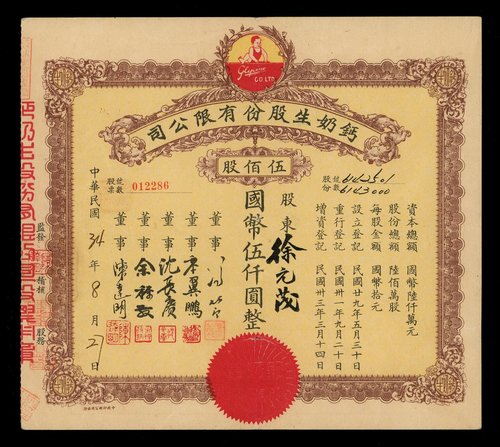 CO LTD.
鈣奶生股份有限公司
伍佰股
股份號數 6142501
6143000
資本總額 國幣陸仟萬元
股份總額 陸佰萬股
每股金額 國幣拾元
設立登記 民國廿九年五月三十日
重行登記 民國卅一年九月二十日
增資登記 民國卅三年三月十四日
股東 徐元茂
國幣伍仟圓整
董事
董事
董事 沈長賡
董事
董事 陳達明
股票號數 012286
中華民國34年8月21日
監發
稽核
股務